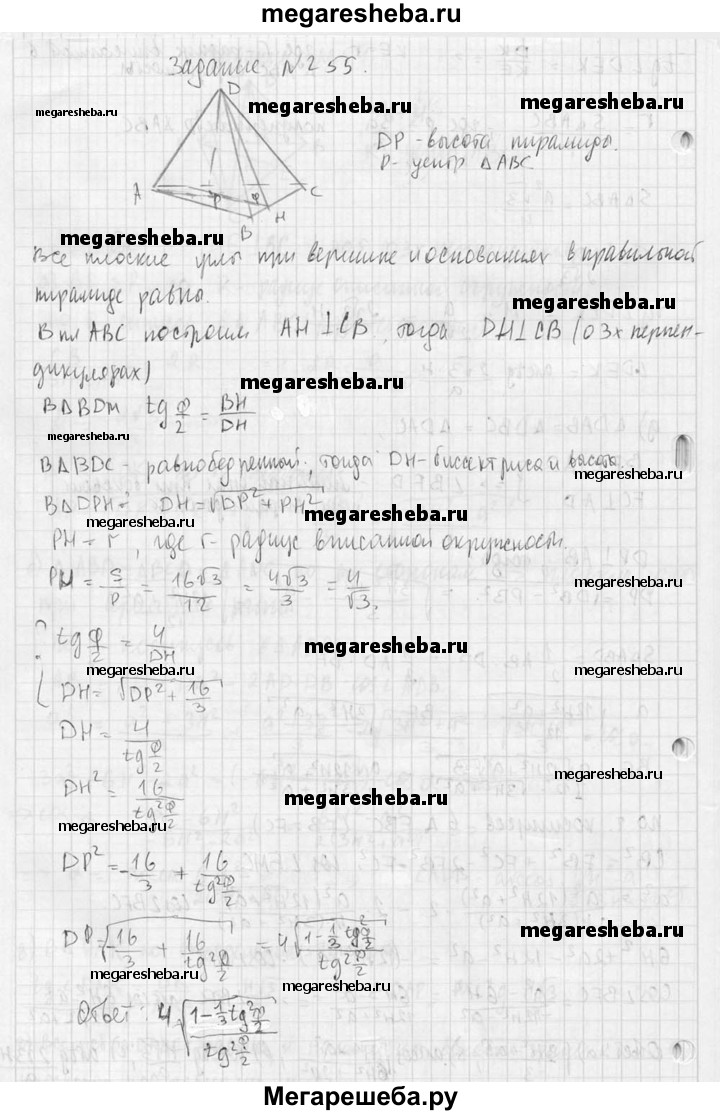 megaresheba.ru
Задание №255.
D
megaresheba.ru
megaresheba.ru
megaresheba.ru
DP - высота пирамиды.
P - центр ΔABC
A P φ C
H
B
megaresheba.ru
megaresheba.ru
Все плоские углы при вершине и основаниях в правильной
пирамиде равны.
megaresheba.ru
В пл ABC построим AH⊥CB, тогда DH⊥CB (о 3х перпен-
дикулярах)
megaresheba.ru
В ΔBDm tg φ/2 = BH/DH
ΔBDC - равнобедренной, тогда DH - биссектриса и высота.
megaresheba.ru
В ΔDPH: DH = √(DP² + PH²)
megaresheba.ru
megaresheba.ru
PH = r, где r - радиус вписанной окружности.
PH = S/P = 16√3/12 = 4√3/3 = 4/√3.
megaresheba.ru
megaresheba.ru
tg φ/2 = 4/DH
megaresheba.ru
megaresheba.ru
DH = √(DP² + 16/3)
DH = 4/tg φ/2
DH² = 16/tg² φ/2
megaresheba.ru
megaresheba.ru
DP² = -16/3 + 16/tg² φ/2
DP = √(-16/3 + 16/tg² φ/2) = 4√((1 - 1/3 tg² φ/2)/tg² φ/2)
megaresheba.ru
megaresheba.ru
megaresheba.ru
Ответ: 4√((1 - 1/3 tg² φ/2)/tg² φ/2)
Мегарешеба.ру